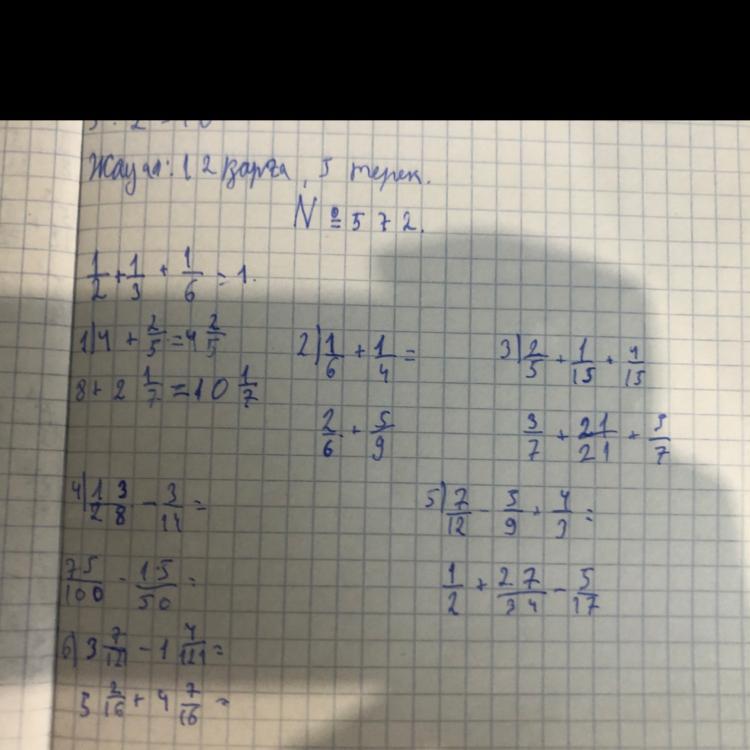 Жауап: 12 қарға, 5 терек.
№572.
1/2 + 1/3 + 1/6 = 1.
1) 4 + 2/5 = 4 2/5
8 + 2 1/7 = 10 1/7
2) 1/6 + 1/4 =
2/6 + 5/9
3) 2/5 + 1/15 + 4/15
3/7 + 21/21 + 3/7
4) 13/28 - 3/14 =
75/100 - 15/50 =
5) 7/12 - 5/9 + 4/3 =
1/2 + 27/34 - 5/17
6) 3 7/121 - 1 4/121 =
5 3/16 + 4 7/16 =